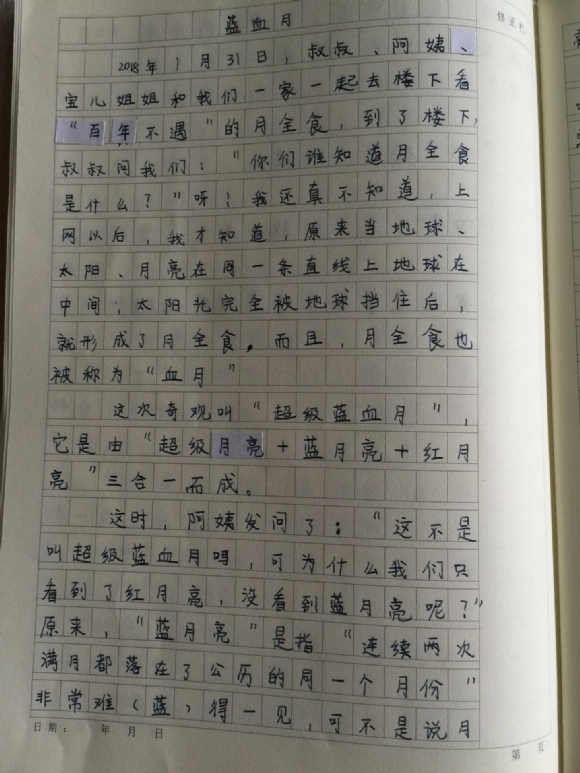 蓝血月
修正栏
2018年1月31日，叔叔、阿姨、
宝儿姐姐和我们一家一起去楼下看
“百年不遇”的月全食，到了楼下，
叔叔问我们：“你们谁知道月全食
是什么？”呀！我还真不知道，上
网以后，我才知道，原来当地球、
太阳、月亮在同一条直线上地球在
中间；太阳光完全被地球挡住后，
就形成了月全食。而且，月全食也
被称为“血月”
这次奇观叫“超级蓝血月”，
它是由“超级月亮+蓝月亮+红月
亮”三合一而成。
这时，阿姨发问了：“这不是
叫超级蓝血月吗，可为什么我们只
看到了红月亮，没看到蓝月亮呢？”
原来，“蓝月亮”是指“连续两次
满月都落在了公历的同一个月份”
非常难（蓝）得一见，可不是说月
日期： 年 月 日
第 页